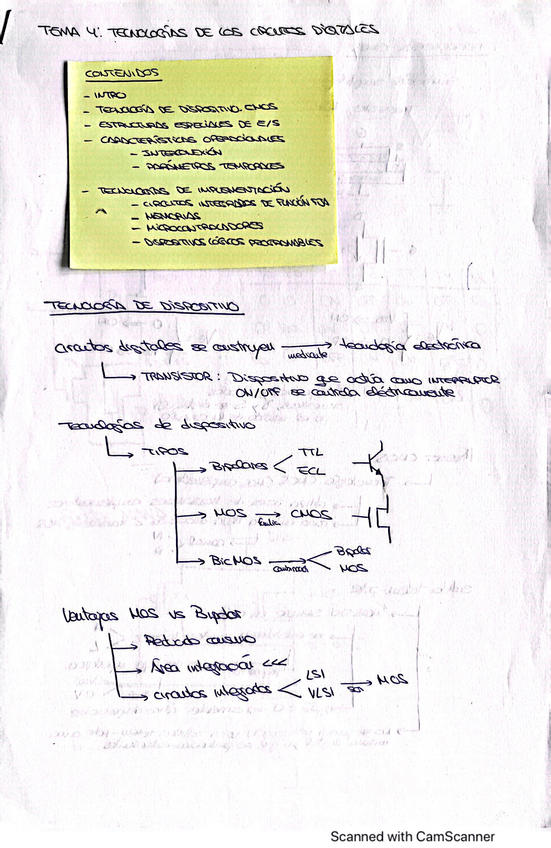 TEMA 4: TECNOLOGÍAS DE LOS CIRCUITOS DIGITALES
CONTENIDOS
- INTRO
- TECNOLOGÍA DE DISPOSITIVO. CMOS
- ESTRUCTURAS ESPECIALES DE E/S
- CARACTERÍSTICAS OPERACIONALES
- INTERCONEXIÓN
- PARÁMETROS TEMPORALES
- TECNOLOGÍAS DE IMPLEMENTACIÓN
- CIRCUITOS INTEGRADOS DE FUNCIÓN FIJA
- MEMORIAS
- MICROCONTROLADORES
- DISPOSITIVOS LÓGICOS PROGRAMABLES
TECNOLOGÍA DE DISPOSITIVO
Circuitos digitales se construyen mediante → tecnología electrónica
→ TRANSISTOR: Dispositivo que actúa como INTERRUPTOR
ON/OFF se controla eléctricamente
Tecnologías de dispositivo
→ TIPOS
→ Bipolares < TTL
ECL
→ MOS → CMOS
→ BicMOS → < Bipolar
MOS
Ventajas MOS vs Bipolar
→ Reducido consumo
→ Área integración <<<
→ Circuitos integrados < LSI
VLSI son → MOS
Scanned with CamScanner